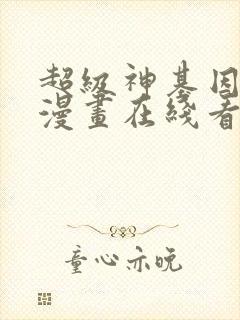 超級神基因
漫畫在綫看
童心亦晚